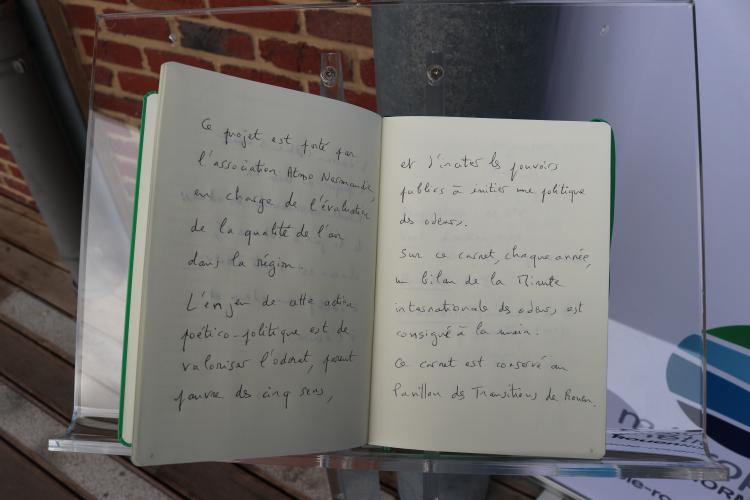 Ce projet est porté par
l'association Atmo Normandie,
en charge de l'évaluation
de la qualité de l'air
dans la région.
L'enjeu de cette action
poético-politique est de
valoriser l'odorat, parent
pauvre des cinq sens,
et d'inciter les pouvoirs
publics à initier une politique
des odeurs.
Sur ce carnet, chaque année,
un bilan de la Minute
internationale des odeurs est
consigné à la main.
Ce carnet est conservé au
Pavillon des Transitions de Rouen.